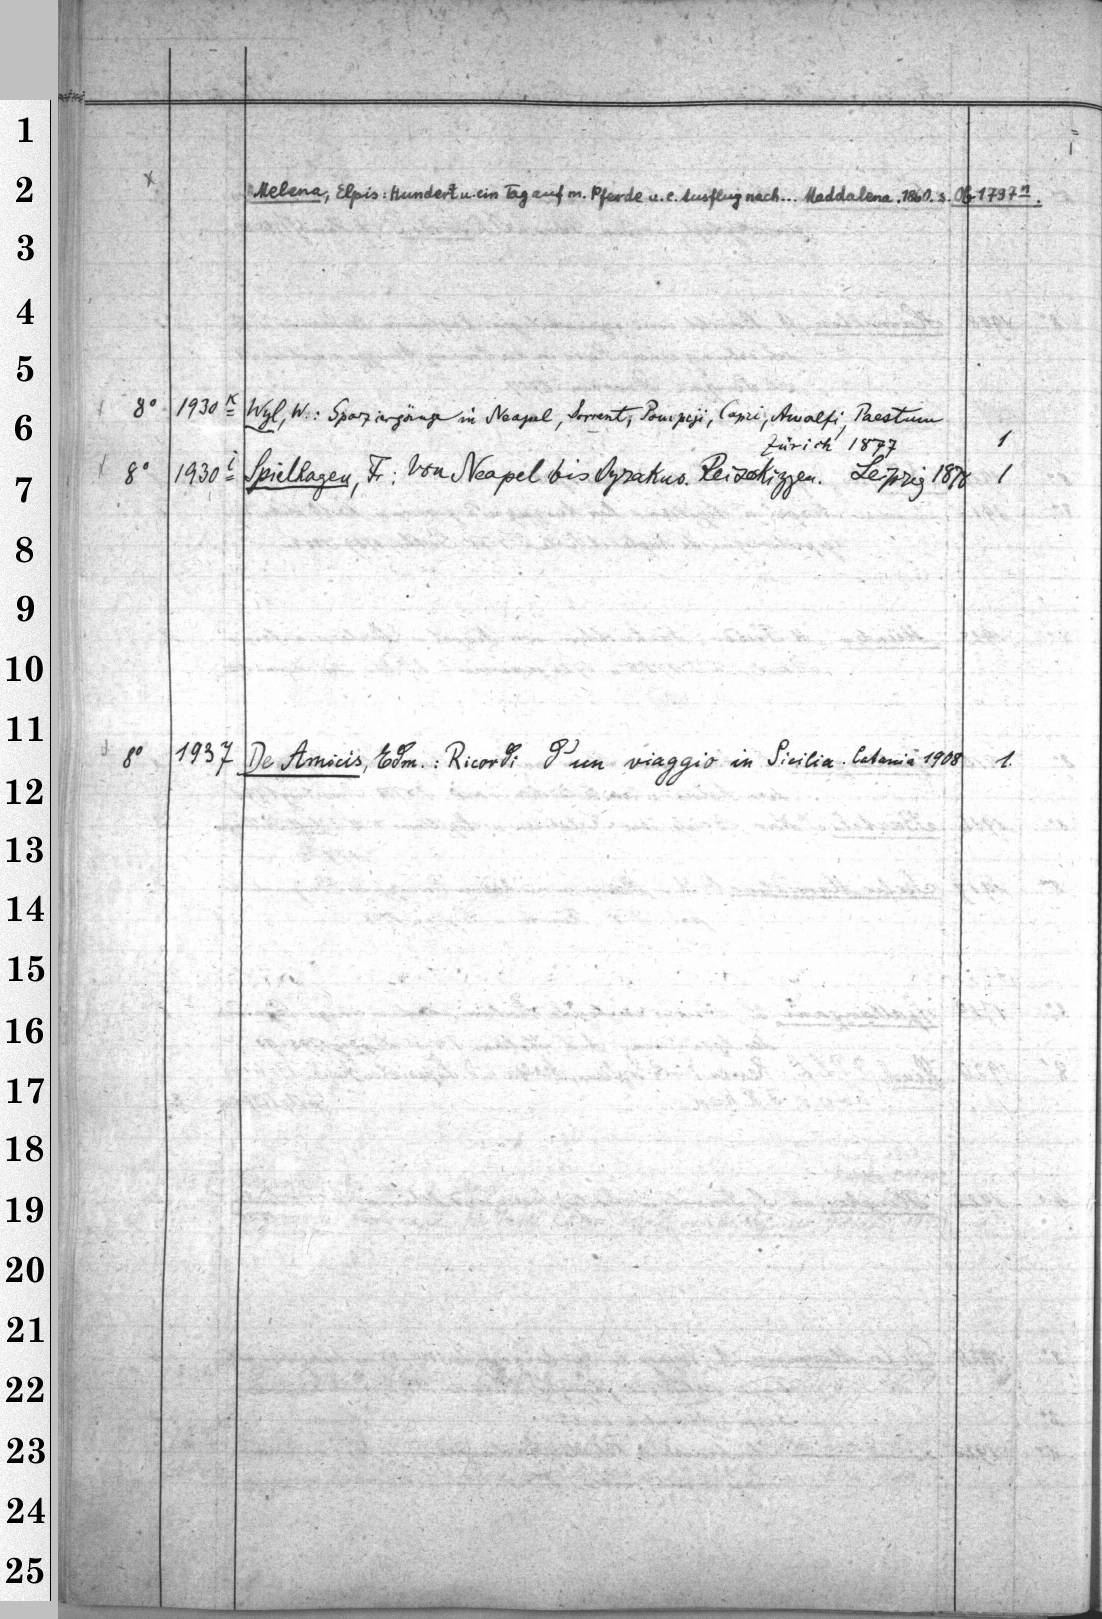 1
2
3
4
5
6
7
8
9
10
11
12
13
14
15
16
17
18
19
20
21
22
23
24
25
x Melena, Elpis: Hundert u. ein Tag auf m. Pferde u. e. Ausflug nach... Maddalena. 1860. s. Ob 1797n.
8° 1930 k Wyl, W.: Spaziergänge in Neapel, Sorrent, Pompeji, Capri, Amalfi, Paestum
Zürich 1877 1
8° 1930 i Spielhagen, Fr: Von Neapel bis Syrakus. Reiseskizzen. Leipzig 1878 1
8° 1937 De Amicis, Edm.: Ricordi d'un viaggio in Sicilia. Catania 1908 1.